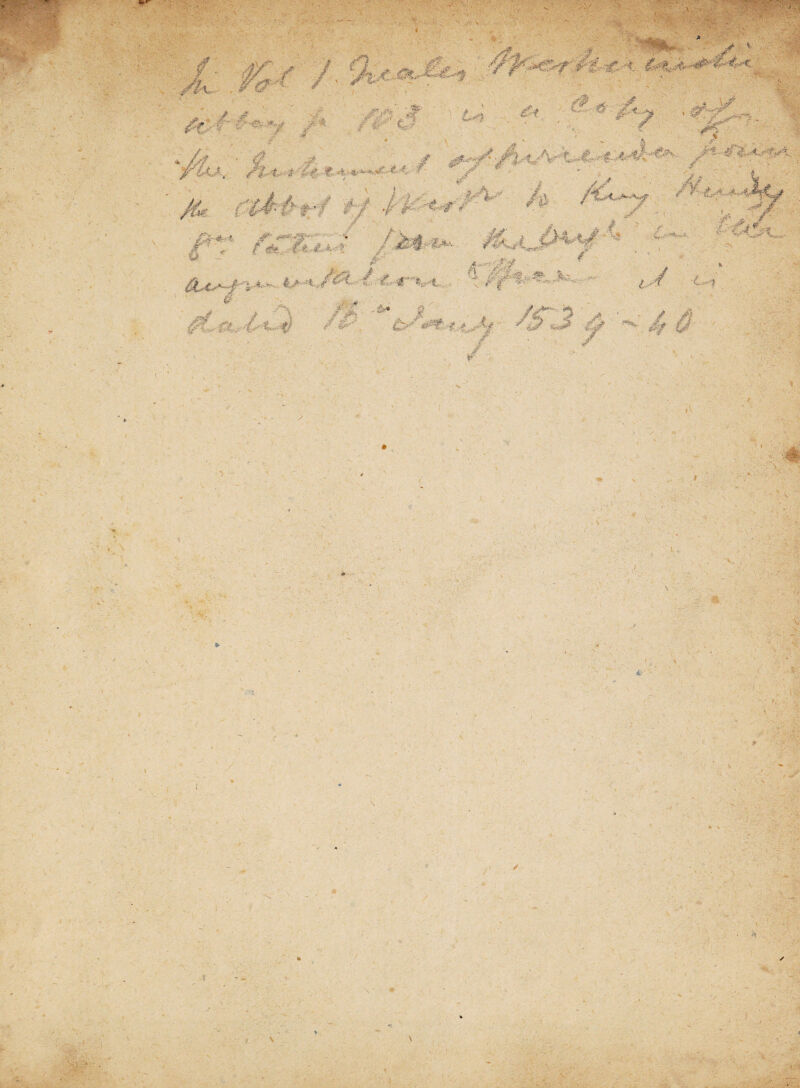 In Vol 1 Neales Westminster
abbey p 103 is a Copy of
the Instrument of surrender from
the Abbot of Westr to King Henry
8th taken from the Origl in the
augmentation Office it is
dated 16th Jany 1539-40